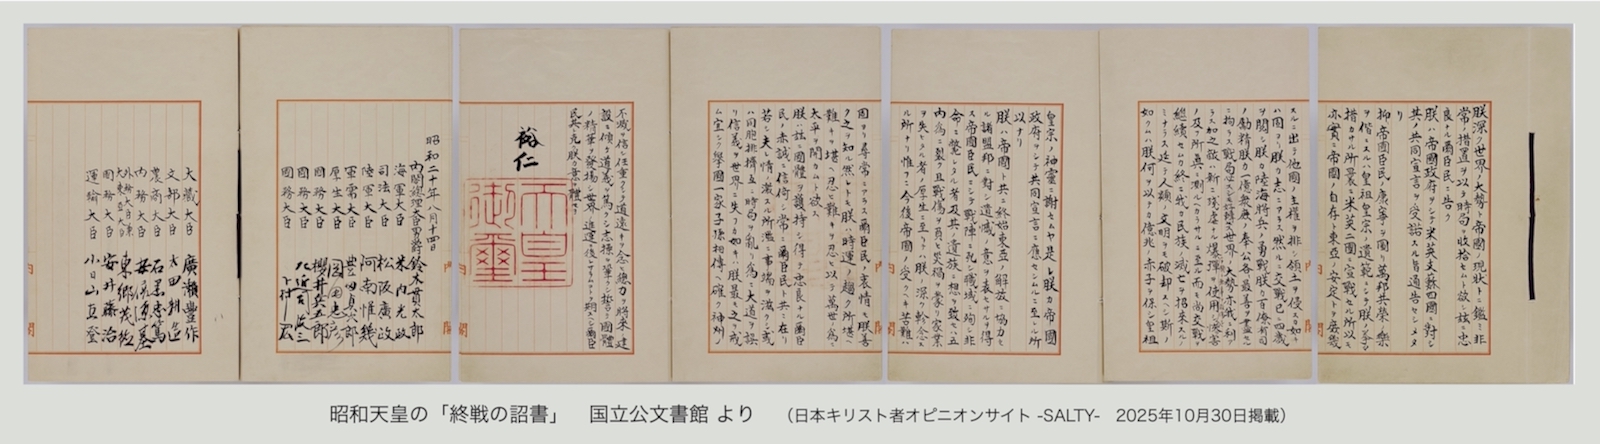 朕深ク世界ノ大勢ト帝國ノ現狀トニ鑑ミ非
常ノ措置ヲ以テ時局ヲ收拾セムト欲シ茲ニ忠
良ナル爾臣民ニ告ク
朕ハ帝國政府ヲシテ米英支蘇四國ニ對シ
其ノ共同宣言ヲ受諾スル旨通告セシメタ
リ
抑〻帝國臣民ノ康寧ヲ圖リ萬邦共榮ノ樂
ヲ偕ニスルハ皇祖皇宗ノ遺範ニシテ朕ノ拳々
措カサル所曩ニ米英二國ニ宣戰セル所以モ
亦實ニ帝國ノ自存ト東亞ノ安定トヲ庶幾
スルニ出テ他國ノ主權ヲ排シ領土ヲ侵スカ如キ
ハ固ヨリ朕カ志ニアラス然ルニ交戰已ニ四歲
ヲ閱シ朕カ陸海將兵ノ勇戰朕カ百僚有司
ノ勵精朕カ一億衆庶ノ奉公各〻最善ヲ盡セル
ニ拘ラス戰局必スシモ好轉セス世界ノ大勢亦我ニ利ア
ラス加之敵ハ新ニ殘虐ナル爆彈ヲ使用シテ 慘害
ノ及フ所眞ニ測ルヘカラサルニ至ル而モ尚交戰ヲ
繼續セムカ終ニ我カ民族ノ滅亡ヲ招來スルノ
ミナラス延テ人類ノ文明ヲモ破却スヘシ斯ノ
如クムハ朕何ヲ以テカ億兆ノ赤子ヲ保シ皇祖
皇宗ノ神靈ニ謝セムヤ是レ朕カ帝國
政府ヲシテ共同宣言ニ應セシムルニ至レル所
以ナリ
朕ハ帝國ト共ニ終始東亞ノ解放ニ協力セ
ル諸盟邦ニ對シ遺憾ノ意ヲ表セサルヲ得
ス帝國臣民ニシテ戰陣ニ死シ職域ニ殉シ非
命ニ斃レタル者及其ノ遺族ニ想ヲ致セハ五
內爲ニ裂ク且戰傷ヲ負ヒ災禍ヲ蒙リ家業
ヲ失ヒタル者ノ厚生ニ至リテハ朕ノ深ク軫念ス
ル所ナリ惟フニ今後帝國ノ受クヘキ苦難ハ
固ヨリ尋常ニアラス爾臣民ノ衷情モ朕善
ク之ヲ知ル然レトモ朕ハ時運ノ趨ク所堪ヘ
難キヲ堪ヘ忍ヒ難キヲ忍ヒ以テ萬世ノ爲ニ
太平ヲ開カムト欲ス
朕ハ茲ニ國體ヲ護持シ得テ忠良ナル爾臣
民ノ赤誠ニ信倚シ常ニ爾臣民ト共ニ在リ
若シ夫レ情ノ激スル所濫ニ事端ヲ滋クシ或
ハ同胞排擠互ニ時局ヲ亂リ爲ニ大道ヲ誤
リ信義ヲ世界ニ失フカ如キハ朕最モ之ヲ戒
ム宜シク擧國一家子孫相傳ヘ確ク神州ノ
不滅ヲ信シ任重クシテ道遠キヲ念ヒ總力ヲ將來ノ建
設ニ傾ケ道義ヲ篤クシ志操ヲ鞏クシ誓テ國體
ノ精華ヲ發揚シ世界ノ進運ニ後レサラムコトヲ期スヘシ爾臣
民其レ克ク朕カ意ヲ體セヨ
裕仁
天皇
御璽
昭和二十年八月十四日
內閣總理大臣男爵鈴木貫太郎
海軍大臣 米內光政
司法大臣 松阪廣政
陸軍大臣 阿南惟幾
軍需大臣 豐田貞次郎
厚生大臣 岡田忠彥
國務大臣 櫻井兵五郎
國務大臣 左近司政三
國務大臣 下村宏
大藏大臣 廣瀨豐作
文部大臣 太田耕造
農商大臣 石黑忠篤
內務大臣 安倍源基
外務大臣兼大東亞大臣 東鄕茂德
國務大臣 安井藤治
運輸大臣 小日山直登
昭和天皇の「終戦の詔書」 国立公文書館 より (日本キリスト者オピニオンサイト -SALTY- 2025年10月30日掲載)